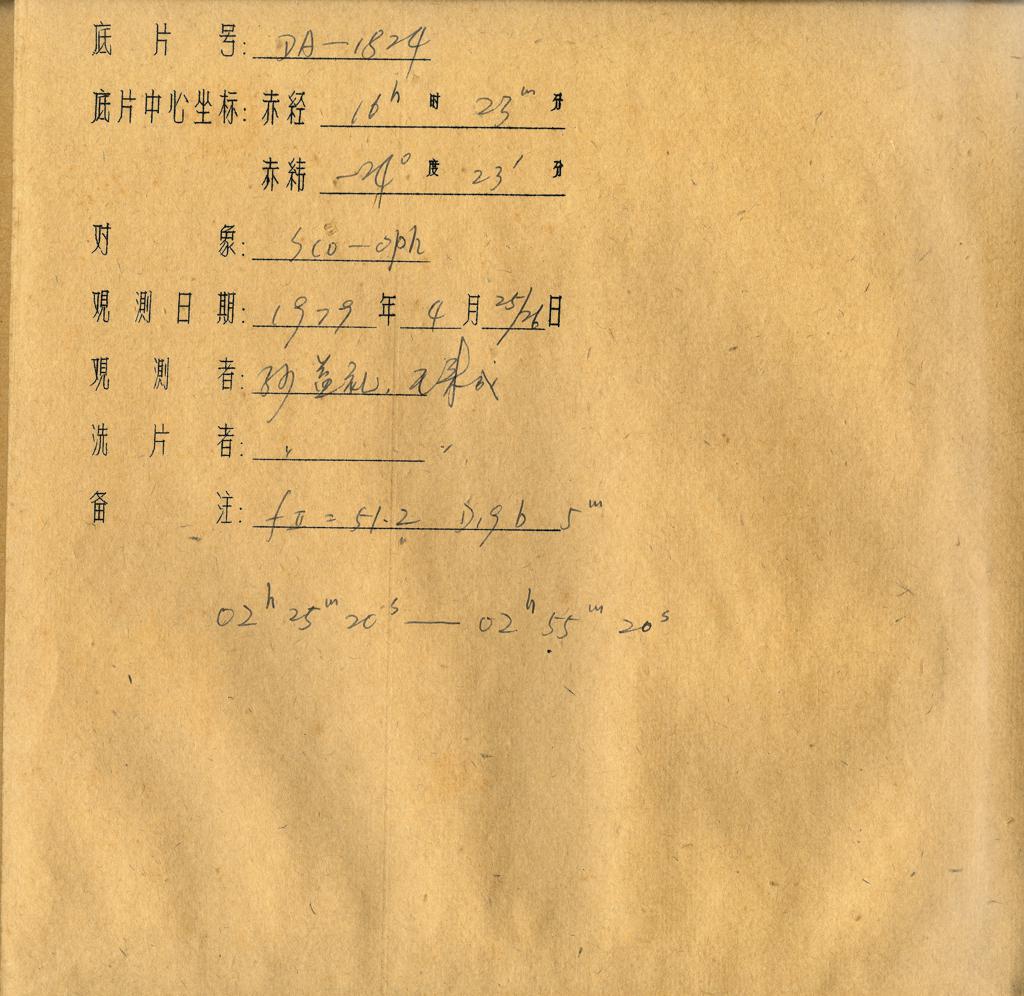 底片号: DA-1824
底片中心坐标: 赤经 16ʰ 时 23ᵐ 分
赤緯 -24° 度 23′ 分
对象: Sco-oph
观測日期: 1979 年 4 月 25/26 日
观測者:
洗片者: 〃 〃
备注: fII = 51.2 5ᵐ
02ʰ 25ᵐ 20ˢ — 02ʰ 55ᵐ 20ˢ